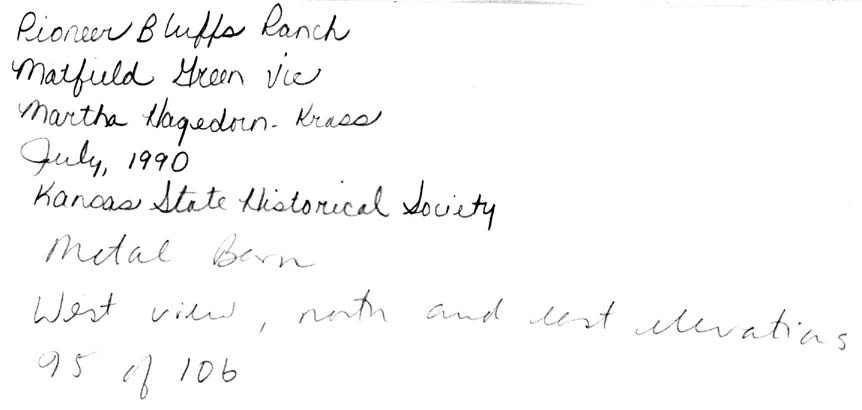 Pioneer Bluffs Ranch
Matfield Green Vic
Martha Hagedorn-Krass
July, 1990
Kansas State Historical Society
Metal Barn
West view, north and east elevations
95 of 106